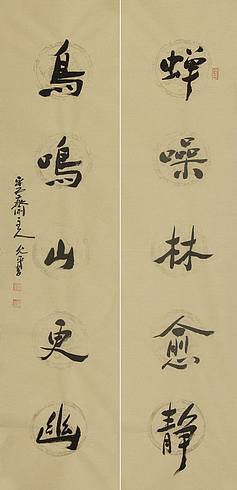 蝉噪林愈静
鸟鸣山更幽